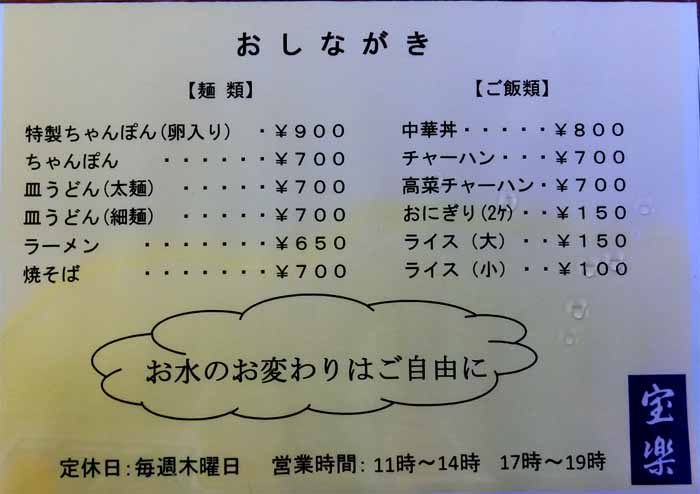 おしながき
【麺 類】
特製ちゃんぽん(卵入り) ・￥９００
ちゃんぽん ・・・・・・￥７００
皿うどん(太麺) ・・・・・￥７００
皿うどん(細麺) ・・・・・￥７００
ラーメン ・・・・・・・￥６５０
焼そば ・・・・・・・￥７００
【ご飯類】
中華丼・・・・・￥８００
チャーハン・・・￥７００
高菜チャーハン・￥７００
おにぎり(2ケ)・・￥１５０
ライス（大）・・￥１５０
ライス（小）・・￥１００
お水のお変わりはご自由に
宝楽
定休日：毎週木曜日 営業時間：11時～14時 17時～19時